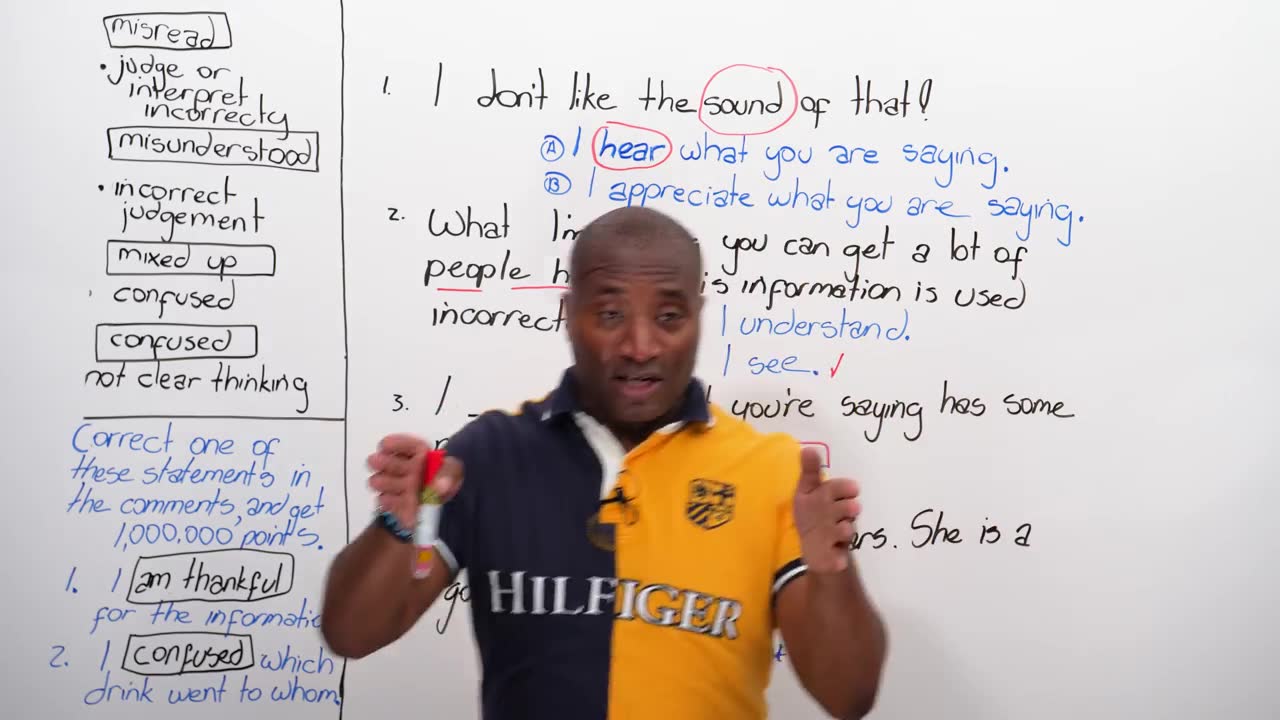 misread
• judge or
interpret
incorrecty
misunderstood
• incorrect
judgement
mixed up
confused
confused
not clear thinking
Correct one of
these statements in
the comments, and get
1,000,000 points.
1. I am thankful
for the
2. I confused which
drink went to whom.
1. I don't like the sound of that!
A I hear what you are saying.
B I appreciate what you are saying.
2. What you can get a lot of
people is information is used
I understand.
I see. ✓
3. I you're saying has some
She is a
HILFIGER